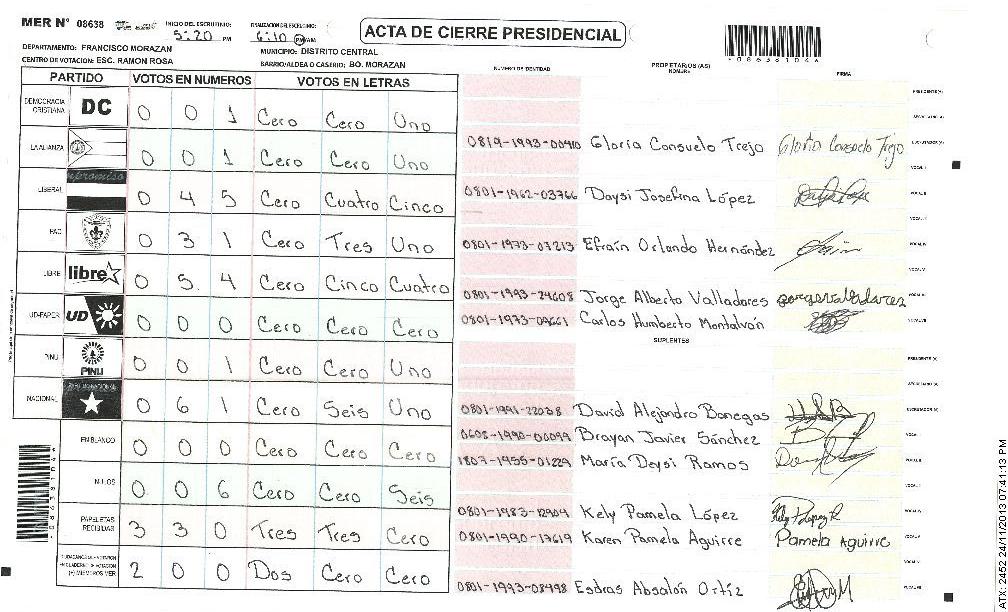 MER N° 08638 INICIO DEL ESCRUTINIO: 5:20 PM FINALIZACION DEL ESCRUTINIO: 6:10 PM/AM
ACTA DE CIERRE PRESIDENCIAL
DEPARTAMENTO: FRANCISCO MORAZAN MUNICIPIO: DISTRITO CENTRAL
CENTRO DE VOTACION: ESC. RAMON ROSA BARRIO/ALDEA O CASERIO: BO. MORAZAN
PARTIDO VOTOS EN NUMEROS VOTOS EN LETRAS
DEMOCRACIA CRISTIANA DC 0 0 1 Cero Cero Uno
LA ALIANZA 0 0 1 Cero Cero Uno
LIBERAL 0 4 5 Cero Cuatro Cinco
PAC 0 3 1 Cero Tres Uno
LIBRE libre 0 5 4 Cero Cinco Cuatro
UD-FAPER UD 0 0 0 Cero Cero Cero
PINU PINU 0 0 1 Cero Cero Uno
NACIONAL 0 6 1 Cero Seis Uno
EN BLANCO 0 0 0 Cero Cero Cero
NULOS 0 0 6 Cero Cero Seis
PAPELETAS RECIBIDAS 3 3 0 Tres Tres Cero
2 0 0 Dos Cero Cero
NUMERO DE IDENTIDAD PROPIETARIOS (AS) NOMBRE FIRMA
0819-1993-00410 Gloria Consuelo Trejo Gloria Consuelo Trejo
0801-1962-03766 Daysi Josefina López
0801-1973-07213 Efraín Orlando Hernández
0801-1993-24608 Jorge Alberto Valladares
0801-1973-09661 Carlos Humberto Montalván
SUPLENTES
0801-1991-22038 David Alejandro Banegas
0608-1990-00099 Brayan Javier Sánchez
1807-1955-01229 María Deysi Ramos
0801-1983-12904 Kely Pamela López
0801-1990-19619 Karen Pamela Aguirre Pamela Aguirre
0801-1993-08998 Esdras Absalón Ortíz
ATX: 2452 24/11/2013 07:41:13 PM